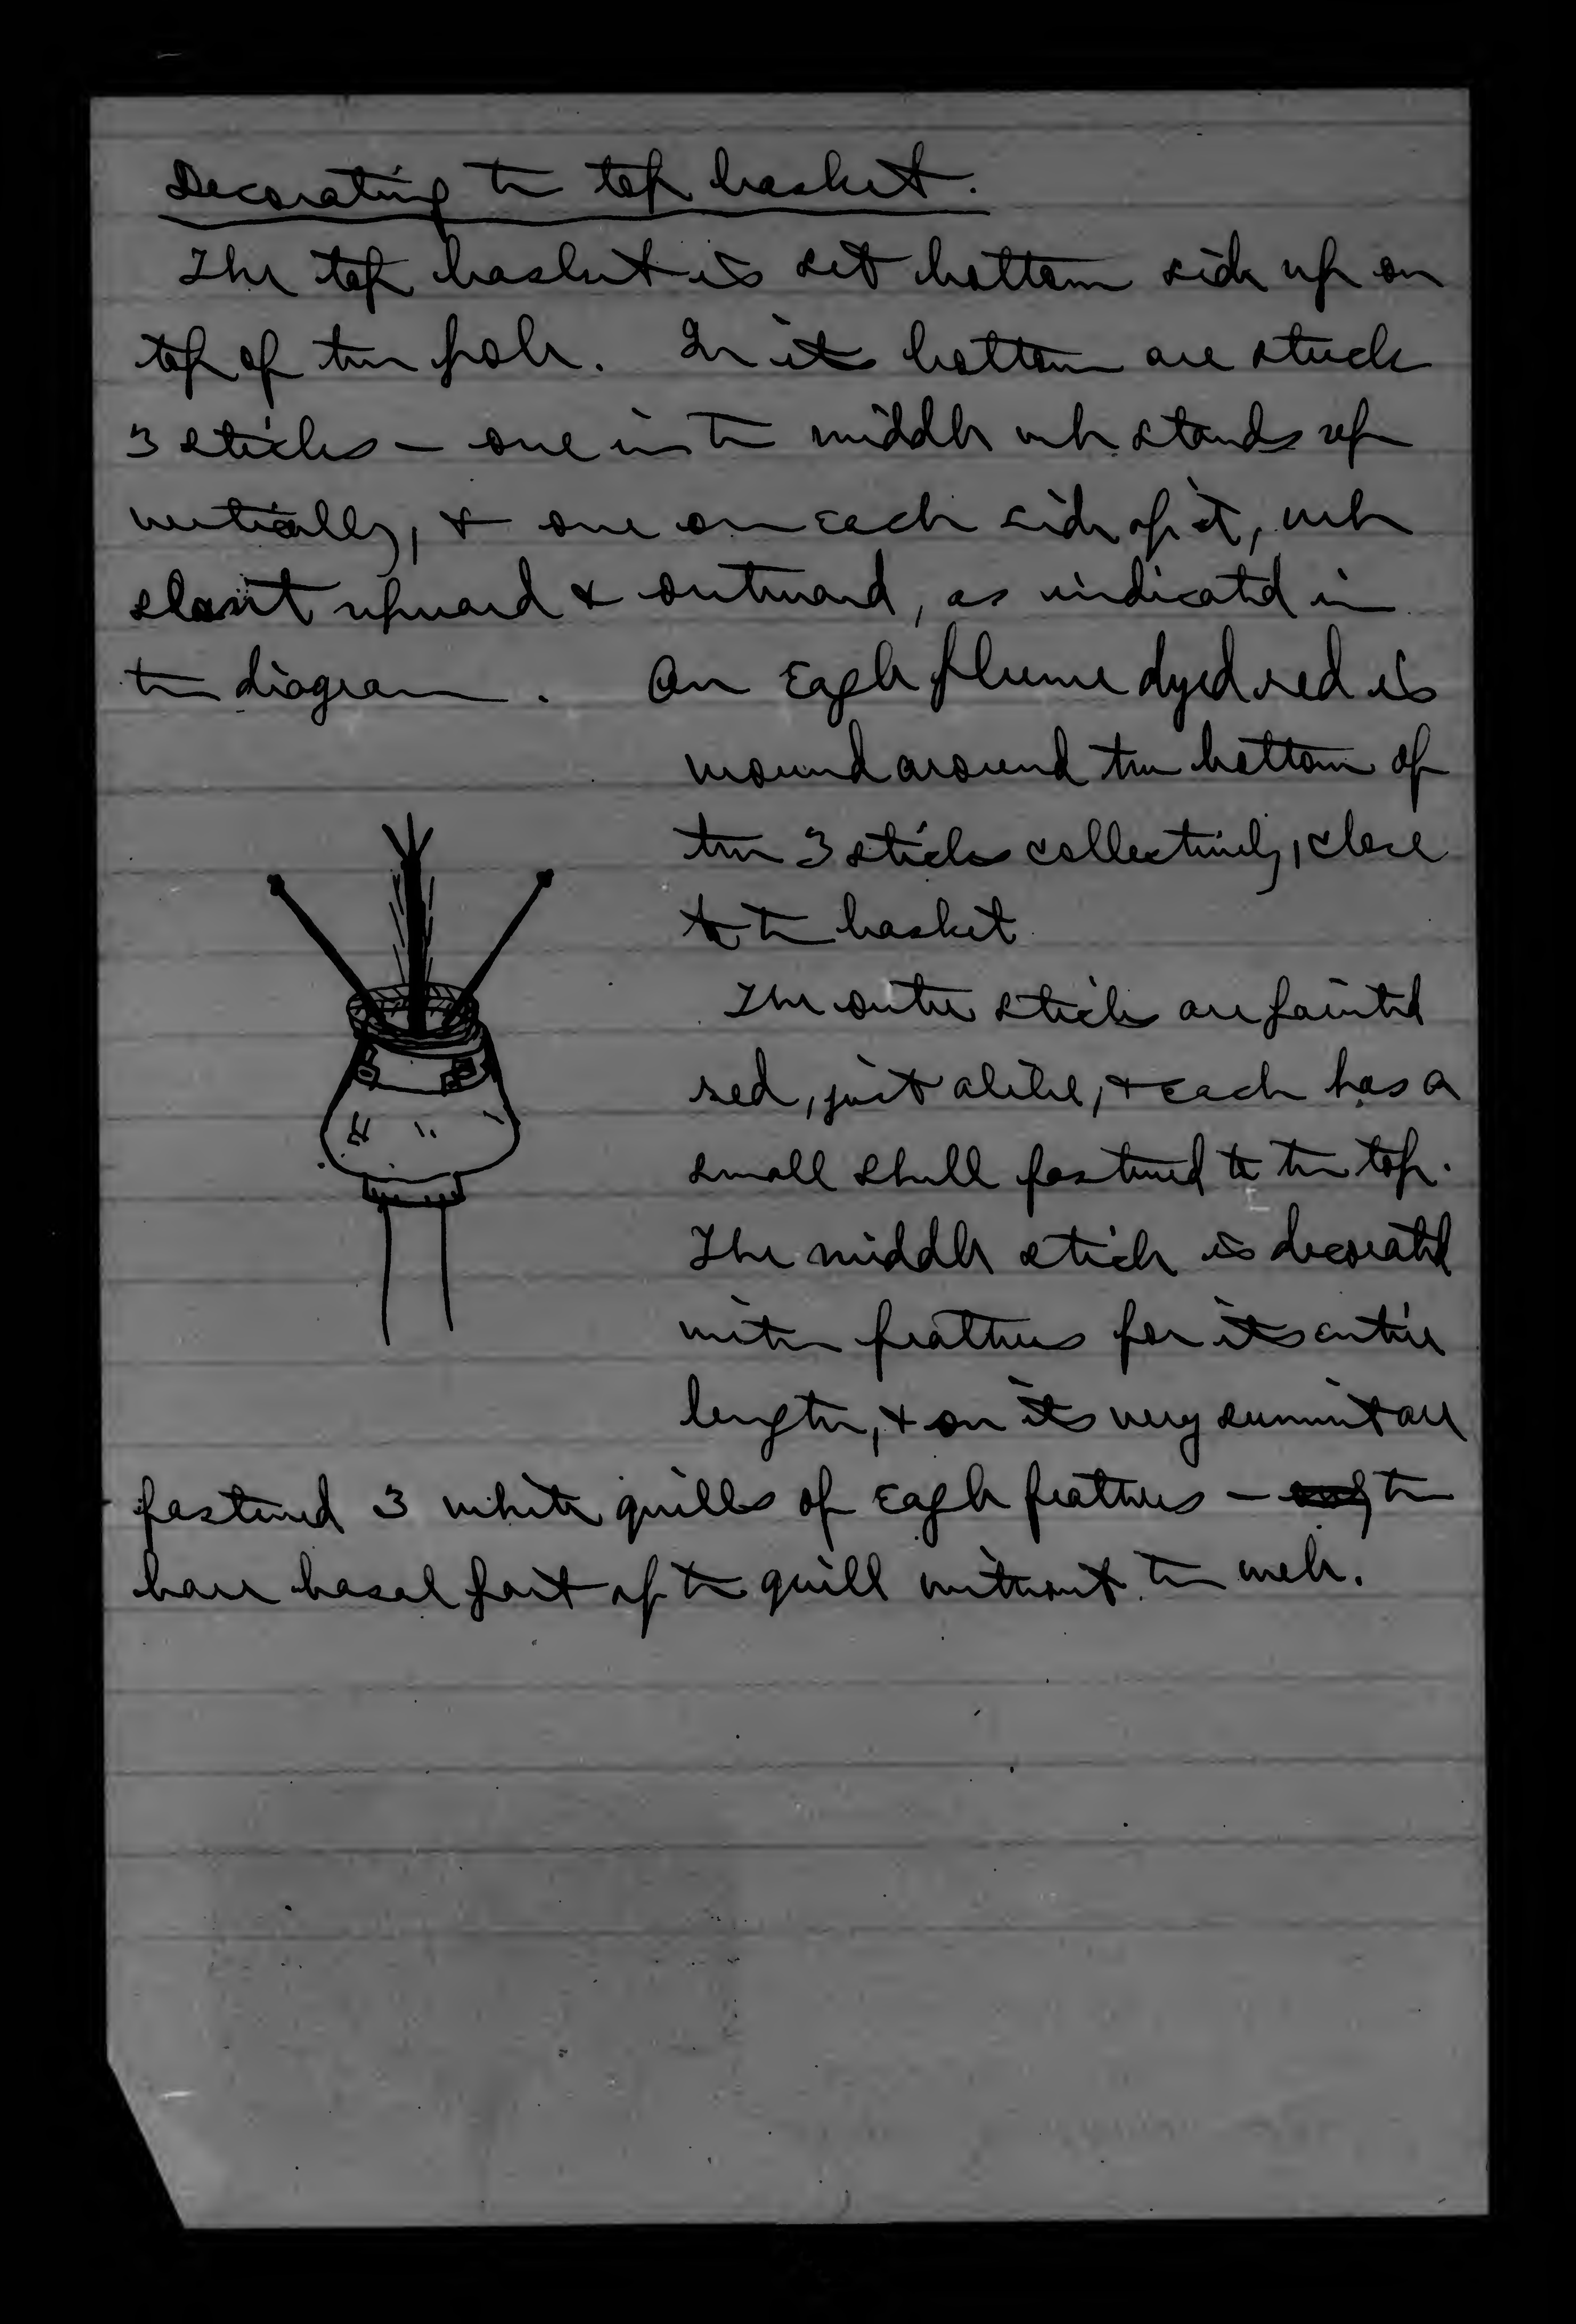 Decorating the top basket.
The top basket is set bottom side up on
top of the pole. In its bottom are stuck
3 sticks — one in the middle wh stands up
vertically, & one on each side of it, wh
slant upward & outward, as indicated in
the diagram. An Eagle plume dyed red is
wound around the bottom of
the 3 sticks collectively, close
to the basket
The outer sticks are painted
red, just alike, & each has a
small shell fastened to the top.
The middle stick is decorated
with feathers for its entire
length, & on its very summit are
fastened 3 white quills of Eagle feathers — the
bare basal part of the quill without the web.